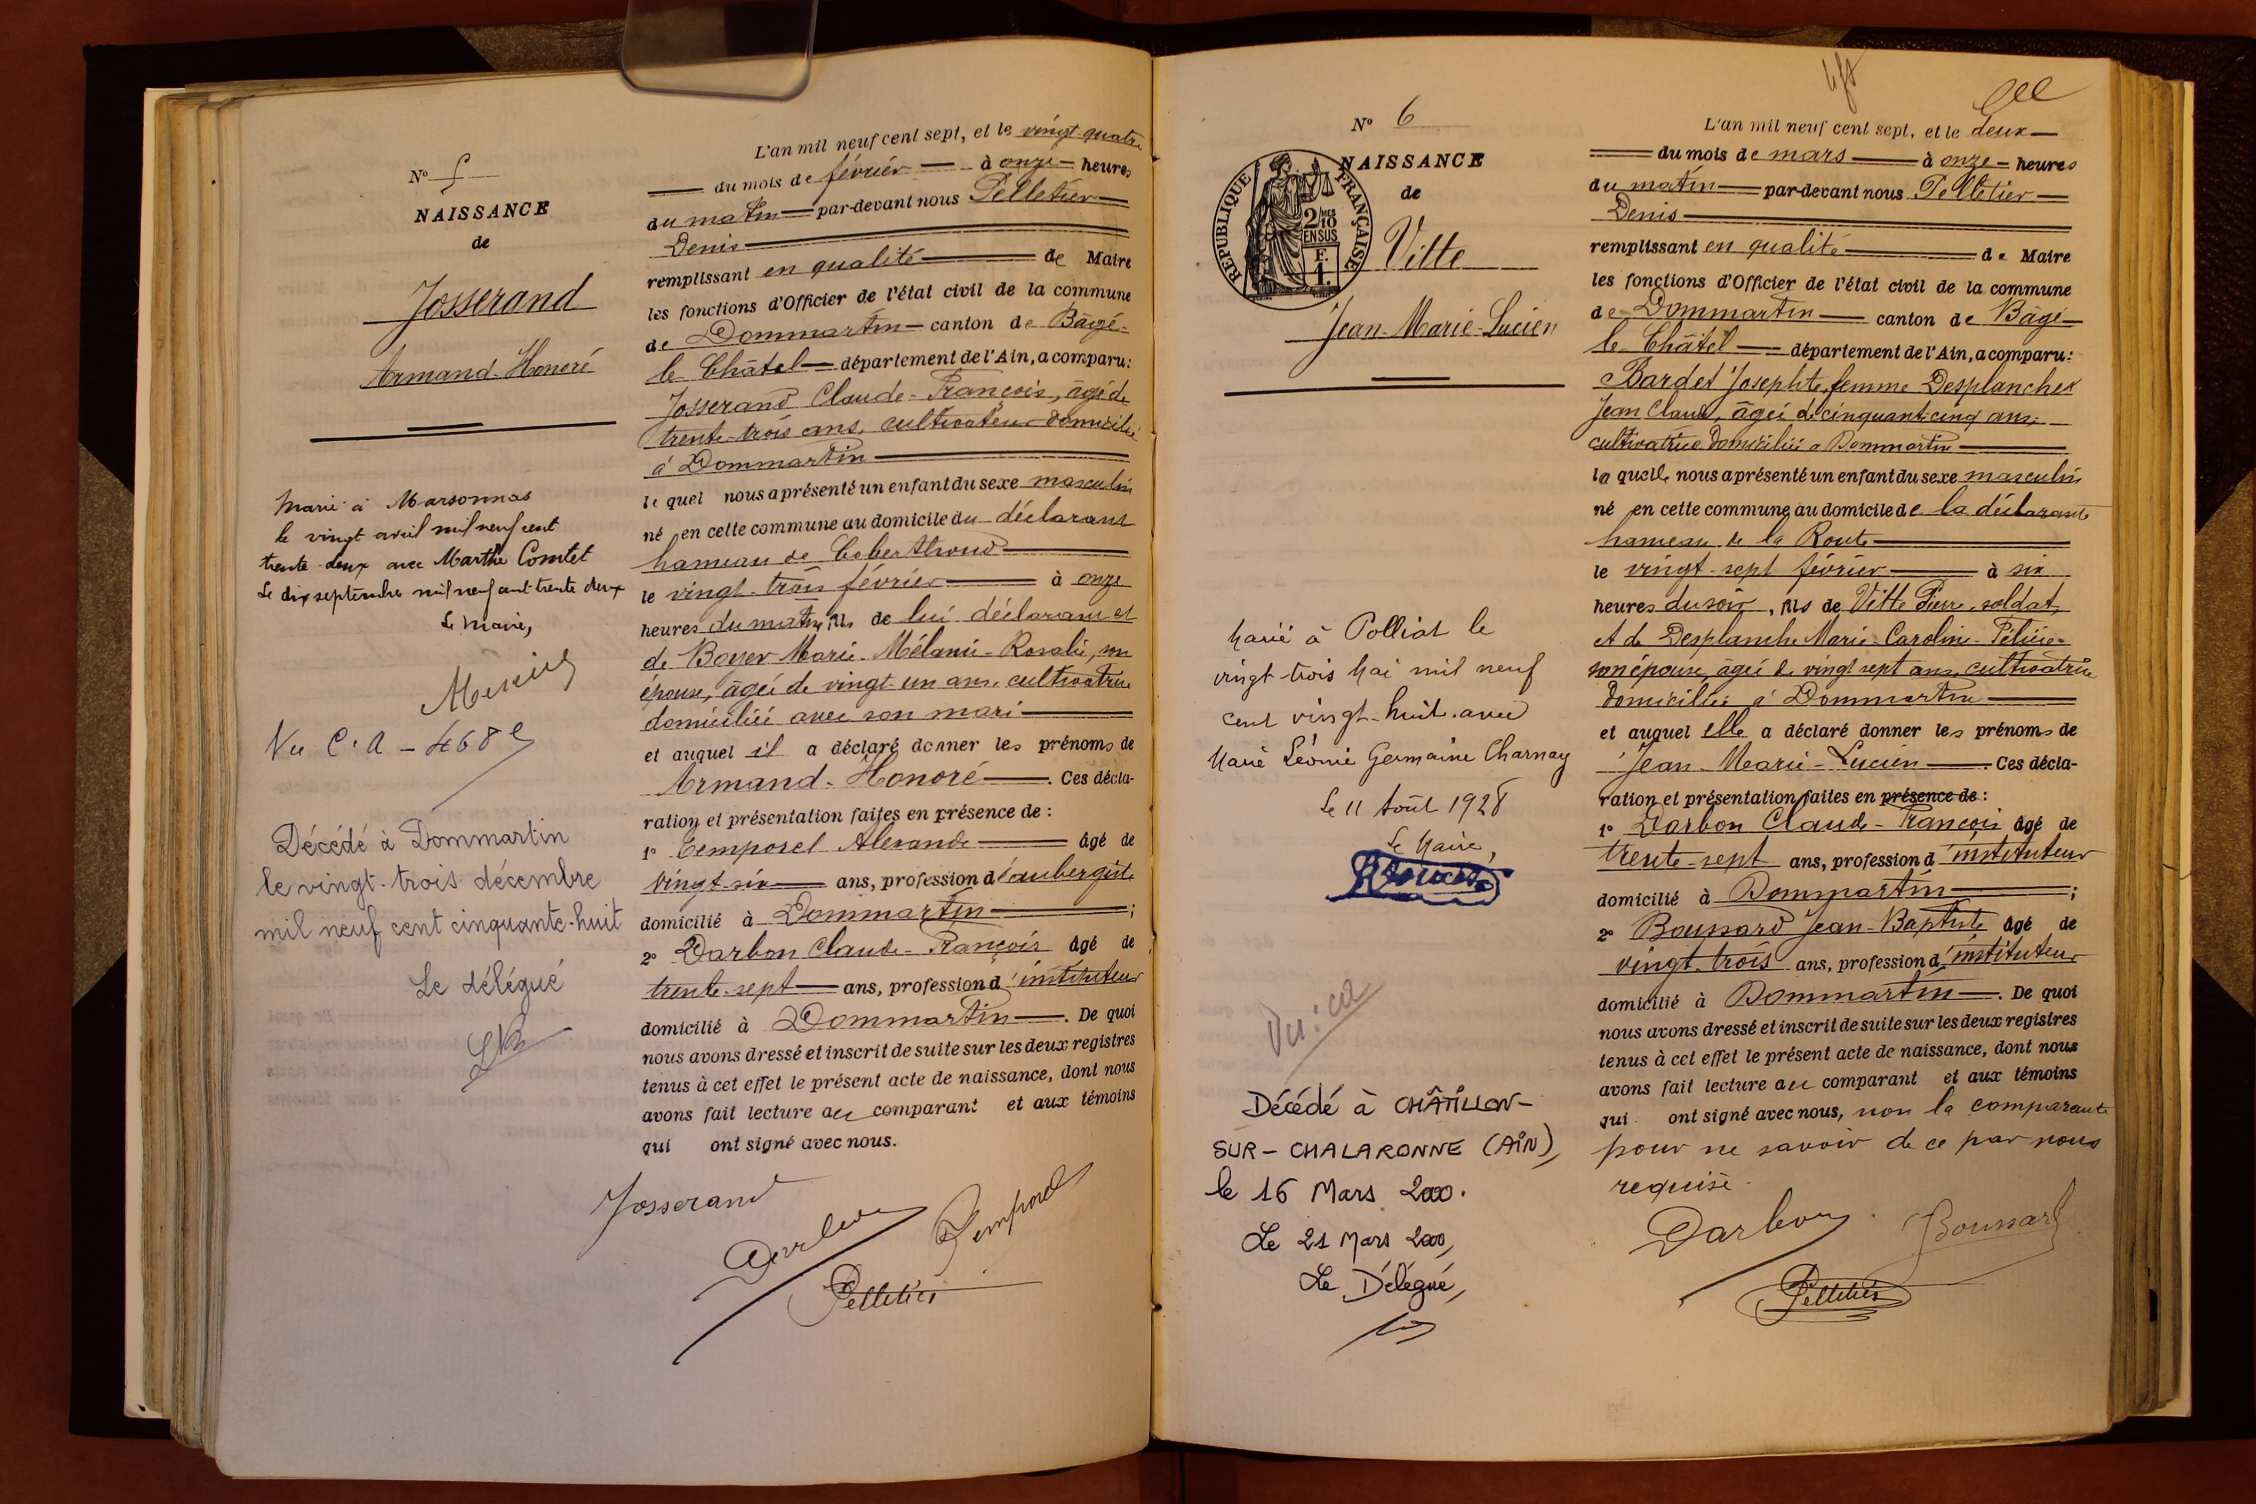 N° 5
NAISSANCE
de
Josserand
Armand-Honoré
Marié à Marsonnas
le vingt avril mil neuf cent
trente deux avec Marthe Comtet
Le dix septembre mil neuf cent trente deux
Le Maire,
Vu C.A - 468
Décédé à Dommartin
le vingt-trois décembre
mil neuf cent cinquante-huit
Le délégué
L'an mil neuf cent sept, et le vingt-quatre
du mois de février à onze heures
du matin par-devant nous Pelletier
Denis
remplissant en qualité de Maire
les fonctions d'Officier de l'état civil de la commune
de Dommartin canton de Bâgé-
le Châtel département de l'Ain, a comparu:
Josserand Claude-François, âgé de
trente-trois ans, cultivateur domicilié
à Dommartin
le quel nous a présenté un enfant du sexe masculin
né en cette commune au domicile du déclarant
hameau de
le vingt-trois février à onze
heures du matin, fils de lui déclarant et
de Boyer Marie-Mélanie-Rosalie, son
épouse, âgée de vingt-un ans, cultivatrice
domiciliée avec son mari
et auquel il a déclaré donner les prénoms de
Armand-Honoré. Ces décla-
ration et présentation faites en présence de :
1° Temporel Alexandre âgé de
vingt-six ans, profession d'aubergiste
domicilié à Dommartin ;
2° Darbon Claude-François âgé de
trente-sept ans, profession d'instituteur
domicilié à Dommartin. De quoi
nous avons dressé et inscrit de suite sur les deux registres
tenus à cet effet le présent acte de naissance, dont nous
avons fait lecture au comparant et aux témoins
qui ont signé avec nous.
Josserand
Darbon
Temporel
Pelletier
N° 6
NAISSANCE
de
REPUBLIQUE FRANÇAISE
2/10 MES
EN SUS
F.
1.
Vitte
Jean-Marie-Lucien
Marié à Polliat le
vingt trois Mai mil neuf
cent vingt-huit avec
Marie Léonie Germaine Charnay
Le 11 Août 1928
Le Maire,
Décédé à CHÂTILLON-
SUR-CHALARONNE (AIN),
le 16 Mars 2000.
Le 21 Mars 2000,
Le Délégué,
L'an mil neuf cent sept, et le deux
du mois de mars à onze heures
du matin par-devant nous Pelletier
Denis
remplissant en qualité de Maire
les fonctions d'Officier de l'état civil de la commune
de Dommartin canton de Bâgé
le Châtel département de l'Ain, a comparu:
Bardet Josephte, femme Desplanches
Jean Claude, âgée de cinquante-cinq ans,
cultivatrice domiciliée à Dommartin
la quelle nous a présenté un enfant du sexe masculin
né en cette commune au domicile de la déclarante
hameau de la Route
le vingt-sept février à six
heures du soir, fils de Vitte Pierre, soldat,
et de Desplanche Marie-Caroline-Félicie
son épouse, âgée de vingt sept ans, cultivatrice
domiciliée à Dommartin
et auquel elle a déclaré donner les prénoms de
Jean-Marie-Lucien. Ces décla-
ration et présentation faites en présence de :
1° Darbon Claude-François âgé de
trente-sept ans, profession d'instituteur
domicilié à Dommartin ;
2° Boussard Jean-Baptiste âgé de
vingt-trois ans, profession d'instituteur
domicilié à Dommartin. De quoi
nous avons dressé et inscrit de suite sur les deux registres
tenus à cet effet le présent acte de naissance, dont nous
avons fait lecture au comparant et aux témoins
qui ont signé avec nous, non la comparante
pour ne savoir de ce par nous
requise.
Darbon
Boussard
Pelletier